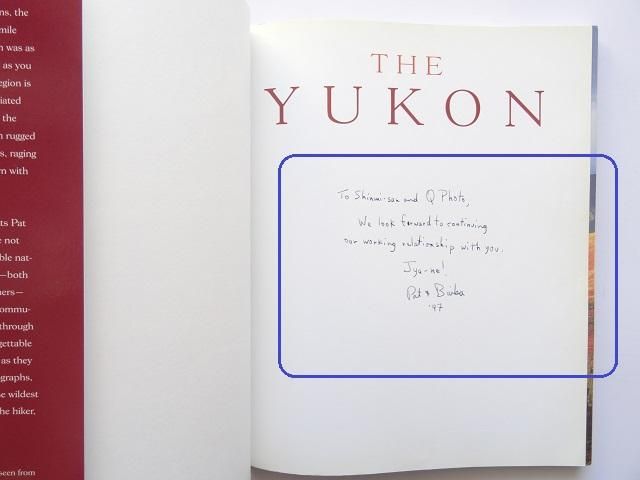 ns, the
mile
n was as
as you
egion is
iated
the
n rugged
s, raging
rn with
ts Pat
e not
ble nat-
—both
ners—
ommu-
through
gettable
as they
ographs,
e wildest
he hiker,
seen from
THE
YUKON
To Shinmi-san and Q Photo,
We look forward to continuing
our working relationship with you.
Jya-ne!
Pat & Baiba
'97